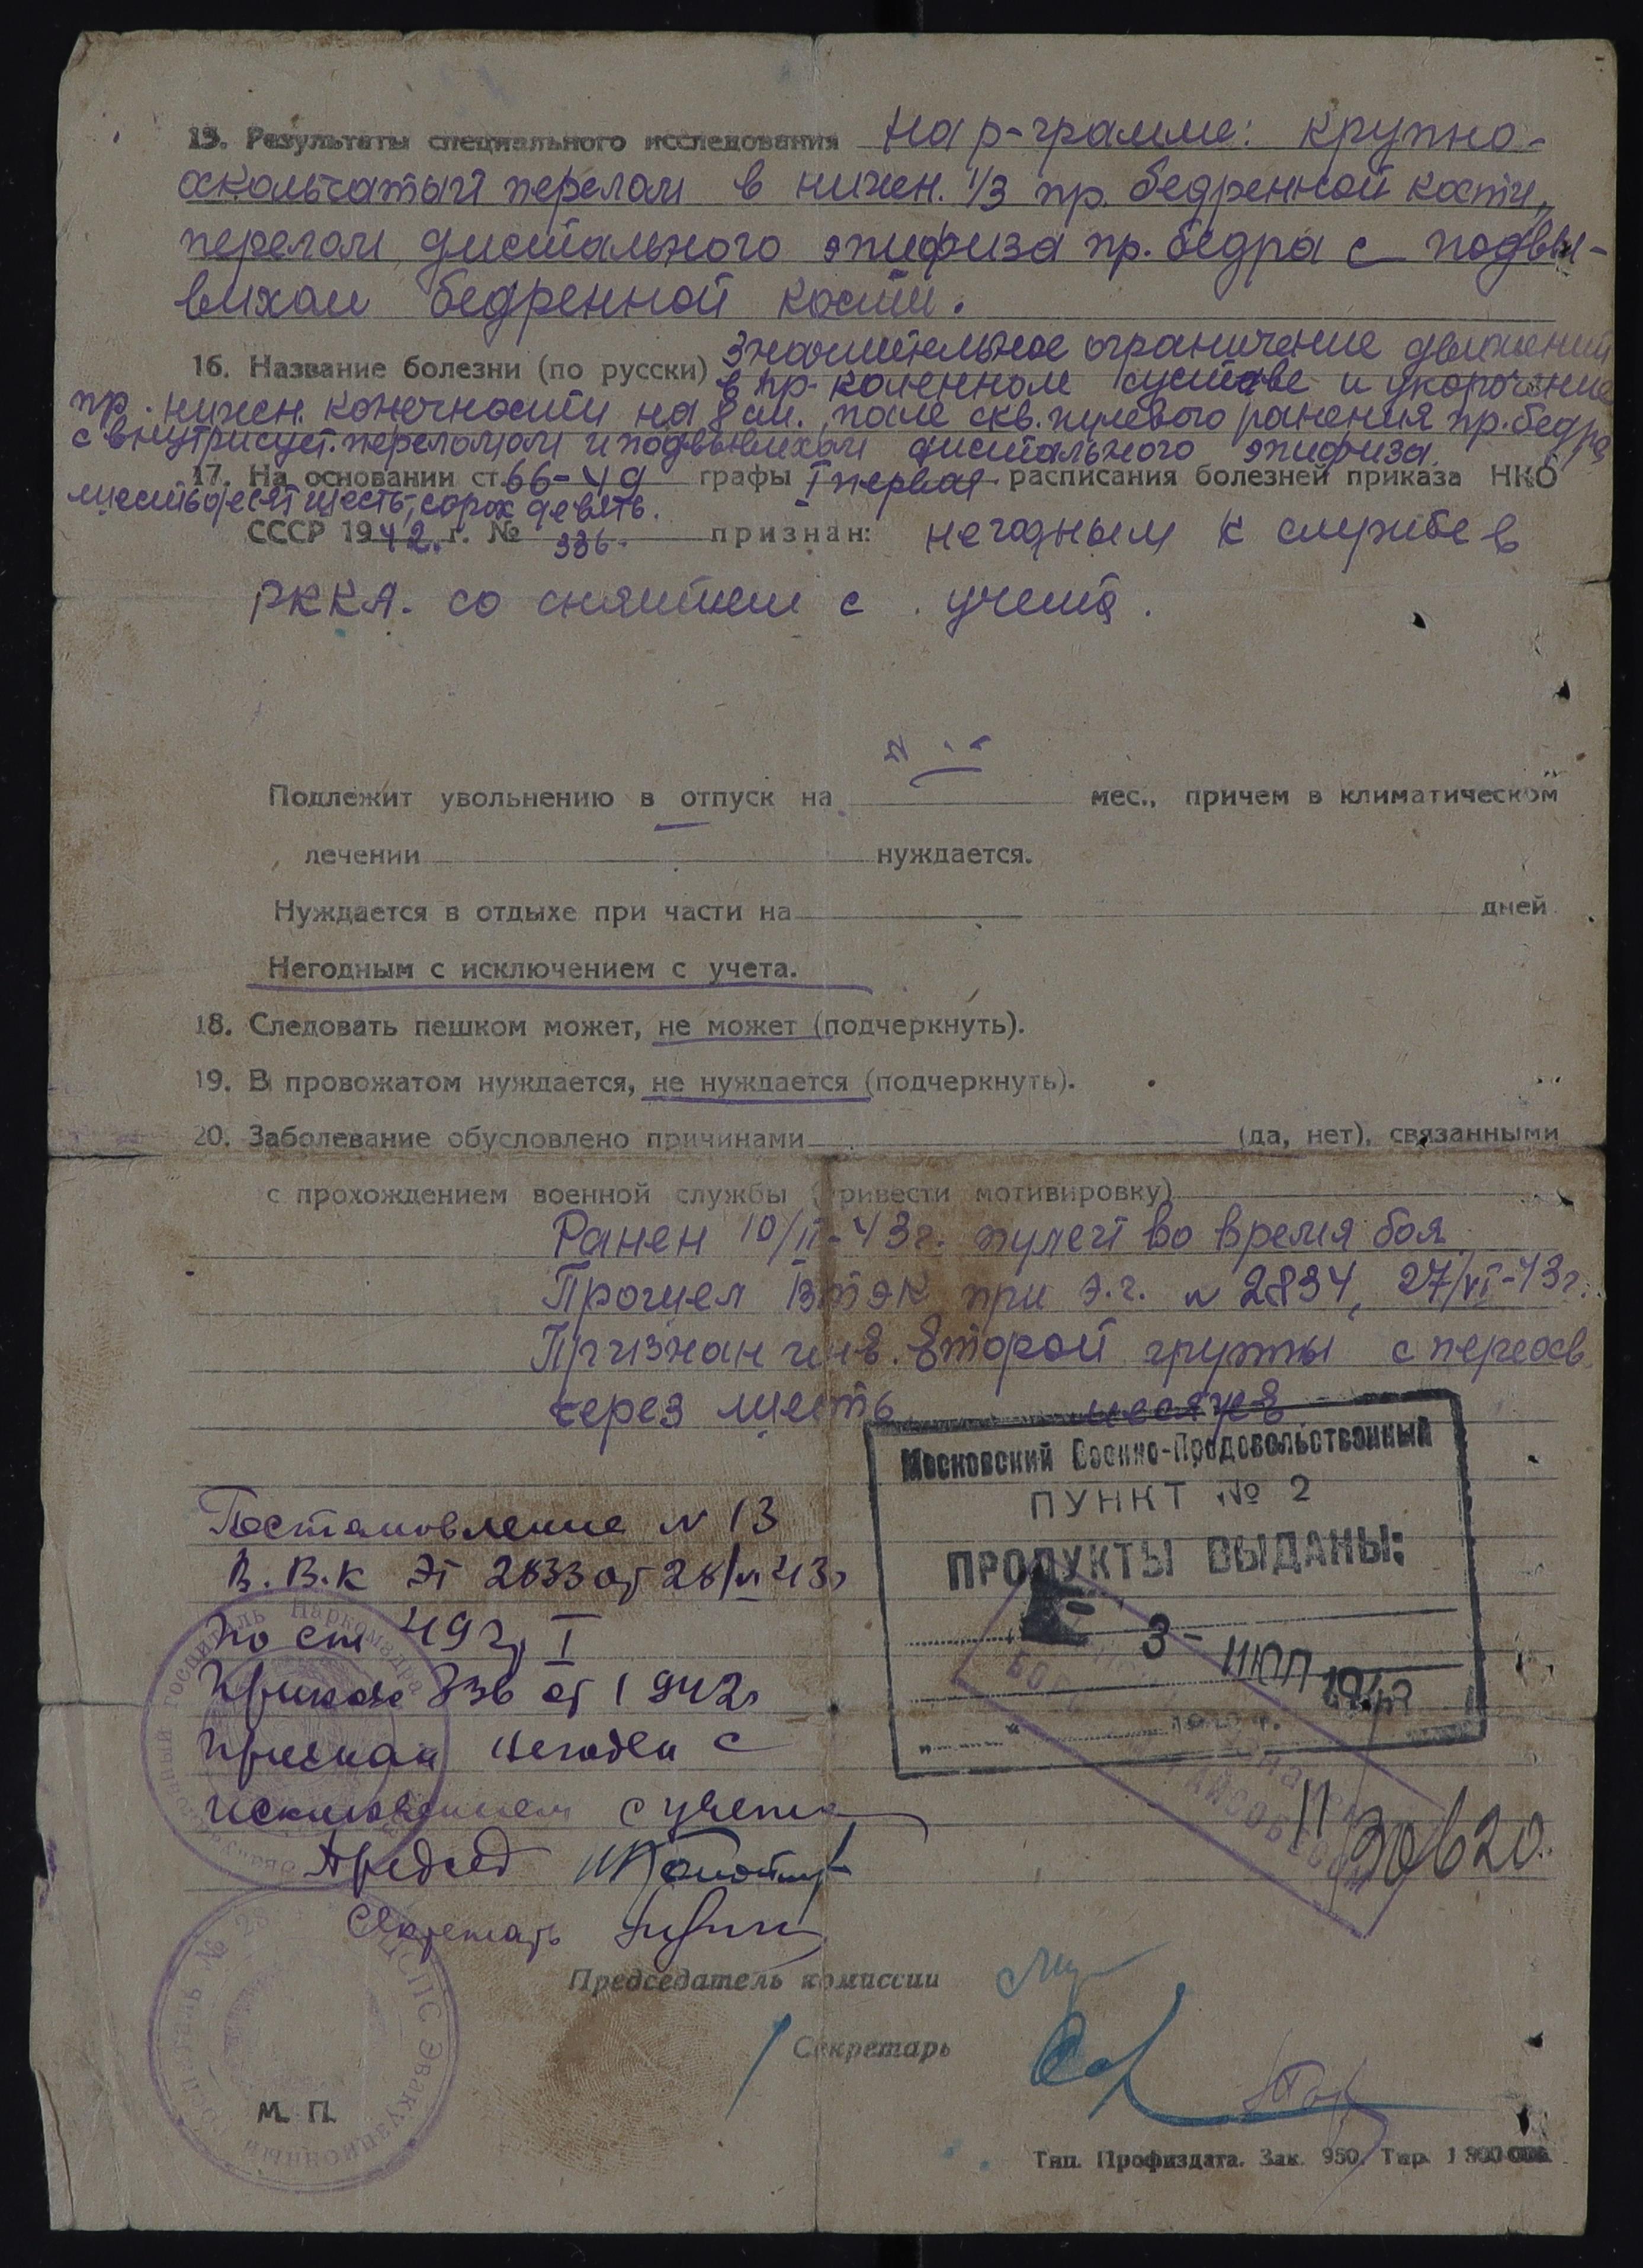 15. Результаты специального исследования На р-грамме: крупно-
оскольчатый перелом в нижн. 1/3 пр. бедренной кости,
перелом дистального эпифиза пр. бедра с подвы-
вихом бедренной кости.
16. Название болезни (по русски) Значительное ограничение движений
в пр. коленном суставе и укорочение
пр. нижн. конечности на 8 см. после скв. пулевого ранения пр. бедра
с внутрисуст. переломом и подвывихом дистального эпифиза.
17. На основании ст. 66-49 графы I первая расписания болезней приказа НКО
шестьдесят шесть, сорок девять.
СССР 1942. г. № 336. признан: негодным к службе в
РККА. со снятием с учета.
Подлежит увольнению в отпуск на мес., причем в климатическом
лечении нуждается.
Нуждается в отдыхе при части на дней
Негодным с исключением с учета.
18. Следовать пешком может, не может (подчеркнуть).
19. В провожатом нуждается, не нуждается (подчеркнуть).
20. Заболевание обусловлено причинами (да, нет), связанными
с прохождением военной службы (привести мотивировку)
Ранен 10/II-43г. пулей во время боя
Прошел ВТЭК при э.г. № 2834, 27/VI-43г.
Признан инв. второй группы с переосв.
через шесть месяцев
Московский Военно-Продовольственный
ПУНКТ № 2
ПРОДУКТЫ ВЫДАНЫ:
3- ИЮЛ 1943
Постановление № 13
В.В.К ЭГ 2833 от 28/VI 43г
по ст 49 гр I
Приказа 336 от 1942г
признан негоден с
исключением с учета
Председ
Секретарь
Председатель комиссии
Секретарь
М. П.
Тип. Профиздата. Зак. 950. Тир. 1 300 000